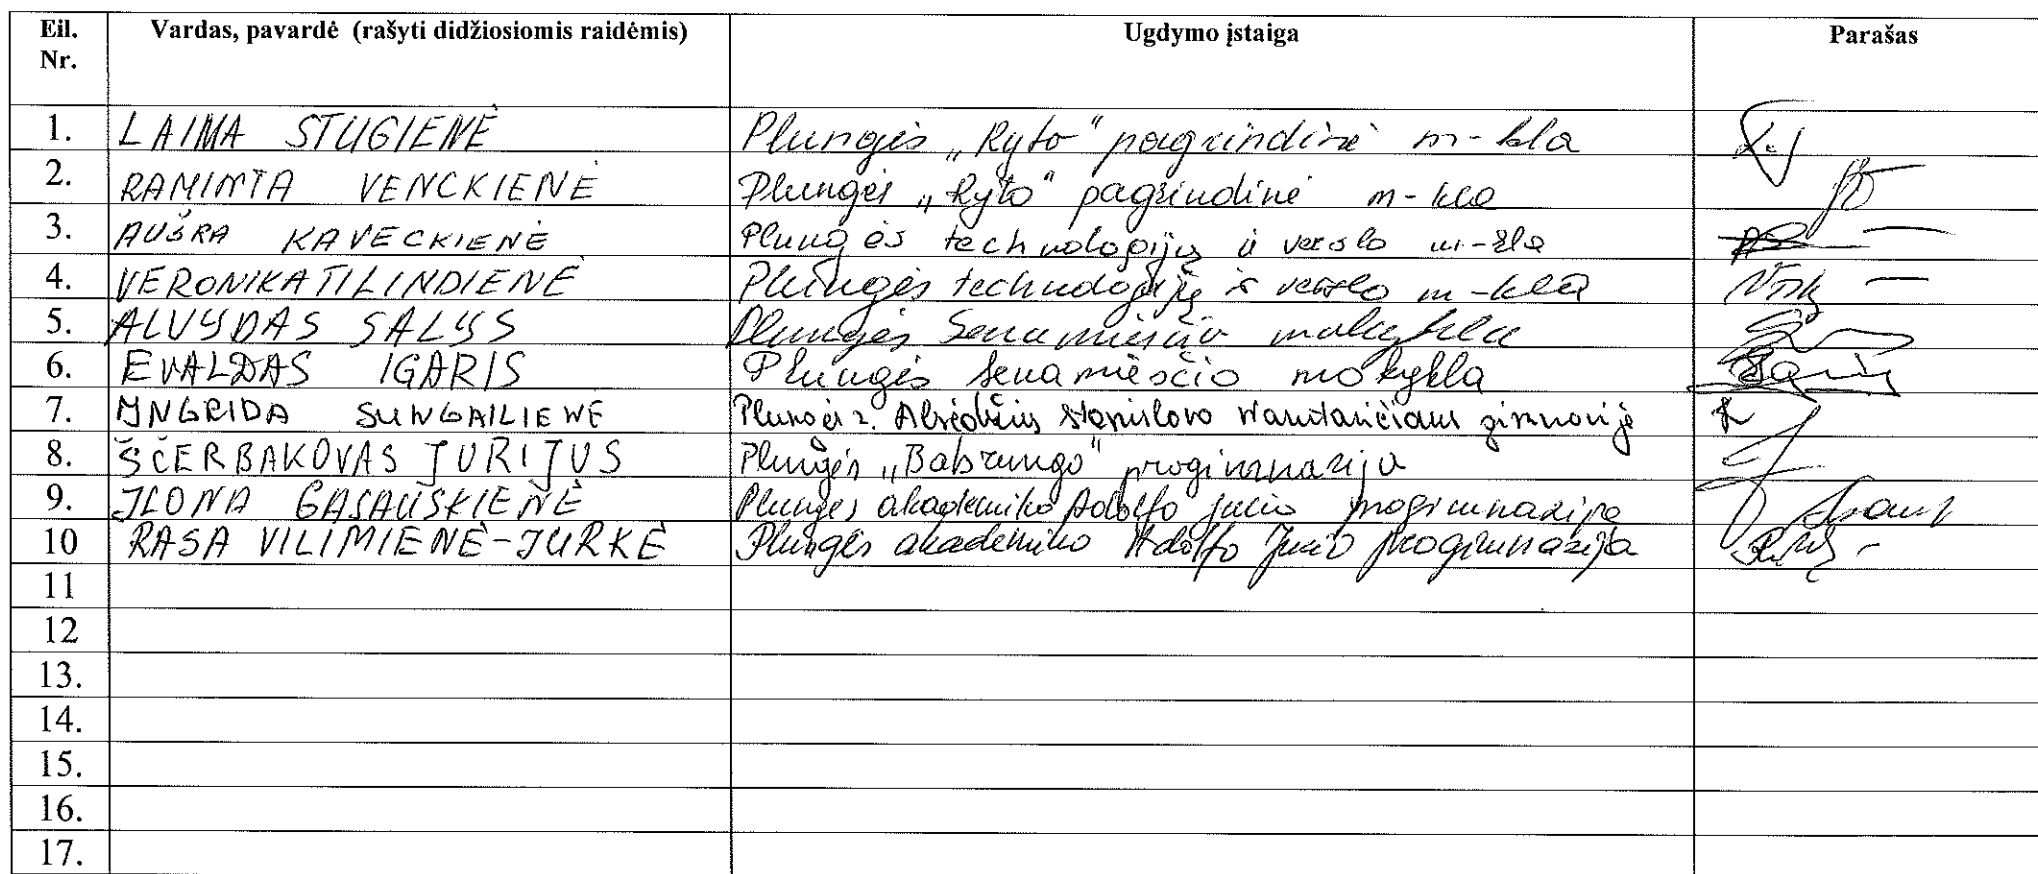 Eil. Nr. Vardas, pavardė (rašyti didžiosiomis raidėmis) Ugdymo įstaiga Parašas
1. LAIMA STUGIENĖ Plungės „Ryto“ pagrindinė m-kla
2. RAMINTA VENCKIENĖ Plungės „Ryto“ pagrindinė m-kla
3. AUŠRA KAVECKIENĖ Plungės technologijų ir verslo m-kla
4. VERONIKA TILINDIENĖ Plungės technologijų ir verslo m-kla
5. ALVYDAS SALYS Plungės Senamiesčio mokykla
6. EVALDAS IGARIS Plungės Senamiesčio mokykla
7. INGRIDA SUNGAILIENĖ Plungės r. Alsėdžių Stanislovo
8. ŠČERBAKOVAS JURIJUS Plungės „Babrungo“ progimnazija
9. ILONA Plungės akademiko Adolfo Jucio progimnazija
10 RASA VILIMIENĖ-JURKĖ Plungės akademiko Adolfo Jucio progimnazija
11
12
13.
14.
15.
16.
17.